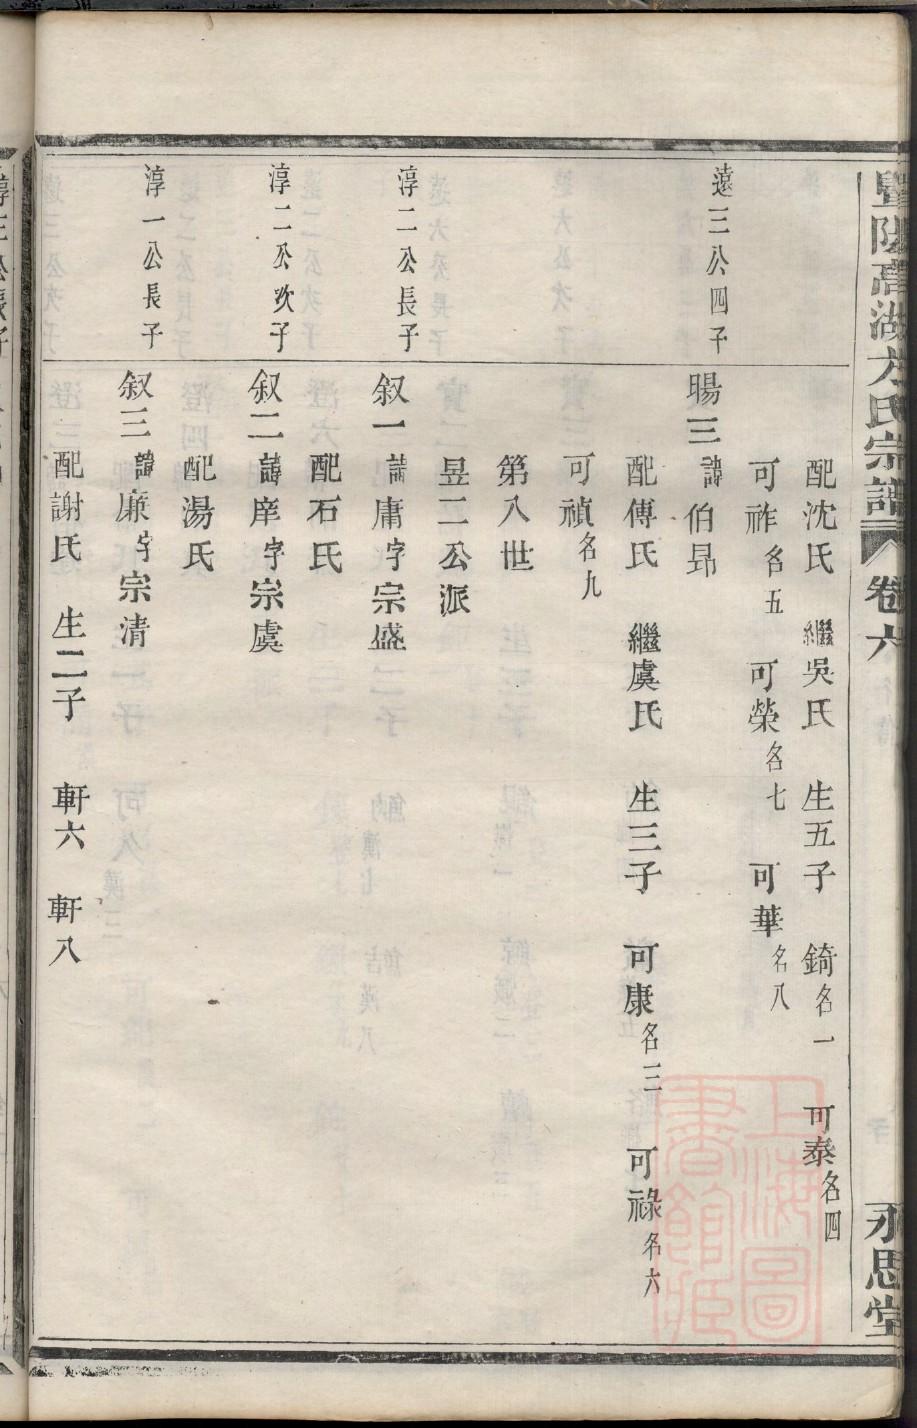 暨陽高湖方氏宗譜 卷六 永思堂
配沈氏 繼吳氏 生五子 錡名一 可泰名四
可祚名五 可榮名七 可華名八
遠三公四子 暘三諱伯昻
配傅氏 繼虞氏 生三子 可康名三 可祿名六
可禎名九
第八世
昱二公派
淳二公長子 叙一諱庸字宗盛
配石氏
淳二公次子 叙二諱庠字宗虞
配湯氏
淳一公長子 叙三諱廉字宗清
配謝氏 生二子 軒六 軒八
上海圖書館藏